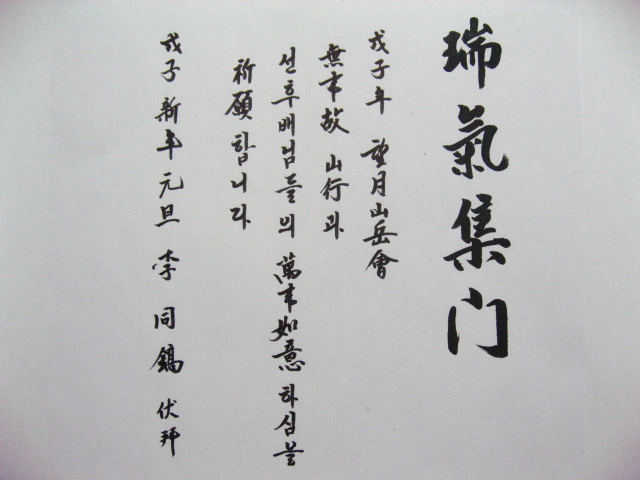 瑞氣集门
戊子年 望月山岳會
無事故 山行과
선후배님들의 萬事如意 하심을
祈願합니다
戊子 新年 元旦 李同鎬 伏拜